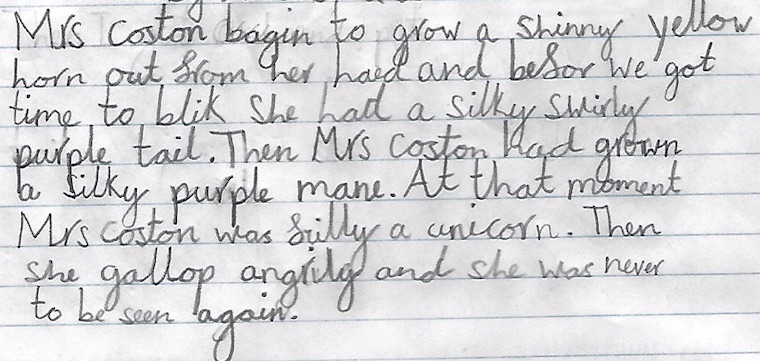 Mrs Coston bagin to grow a shinny yellow
horn out from her haed and befor we got
time to blik she had a silky swirly
purple tail. Then Mrs Coston had grown
a silky purple mane. At that moment
Mrs Coston was fully a unicorn. Then
she gallop angrily and she was never
to be seen again.